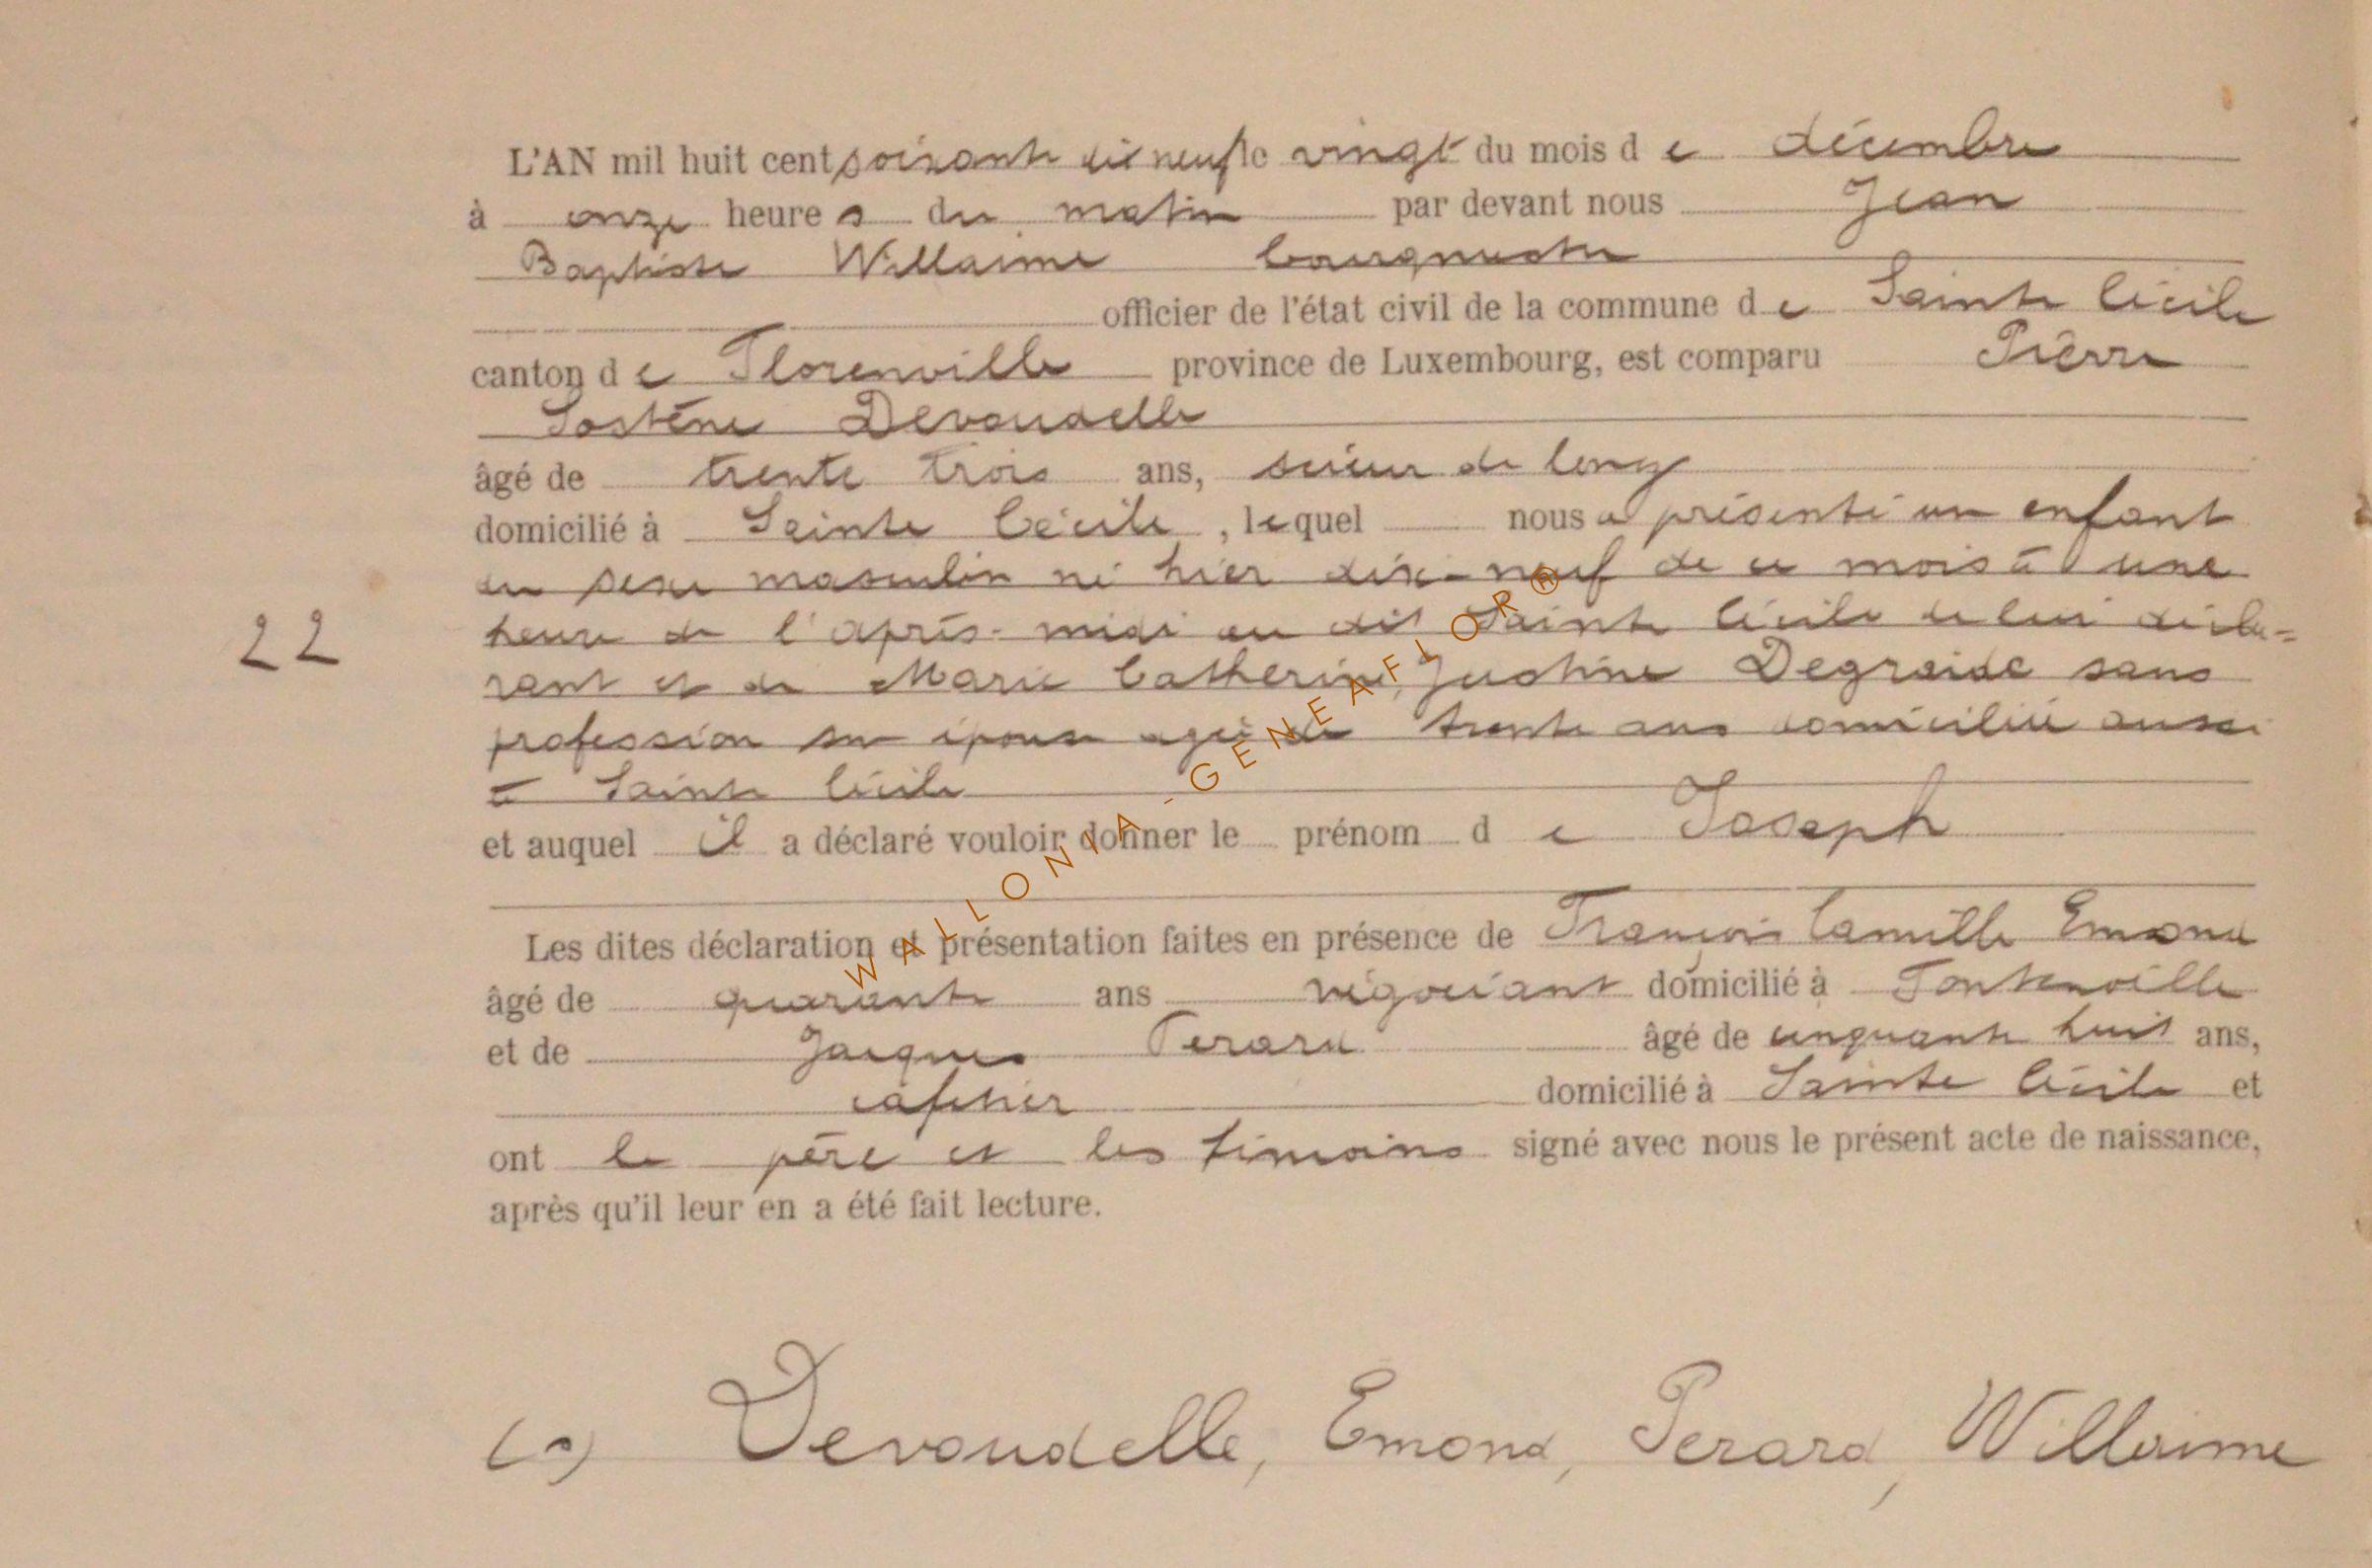 L'AN mil huit cent soixante dix neuf le vingt du mois d e décembre
à onze heure s du matin par devant nous Jean
Baptiste Willaime bourgmestre
officier de l'état civil de la commune d e Sainte Cécile
canton d e Florenville province de Luxembourg, est comparu Pierre
Sostène Devoudelle
âgé de trente trois ans, scieur de long
domicilié à Sainte Cécile, lequel nous a présenté un enfant
du sexe masculin né hier dix-neuf de ce mois à une
22
heure de l'après-midi au dit Sainte Cécile de lui décla-
rant et de Marie Catherine Justine Degraide sans
profession son épouse agée de trente ans domiciliée aussi
à Sainte Cécile
et auquel il a déclaré vouloir donner le prénom d e Joseph
Les dites déclaration et présentation faites en présence de François Camille Emond
âgé de quarante ans négociant domicilié à Fontenoille
et de Jacques Perard âgé de cinquante huit ans,
cafetier domicilié à Sainte Cécile et
ont le père et les témoins signé avec nous le présent acte de naissance,
après qu'il leur en a été fait lecture.
(s) Devoudelle, Emond, Perard, Willaime
WALLONIA-GENEAFLOR®